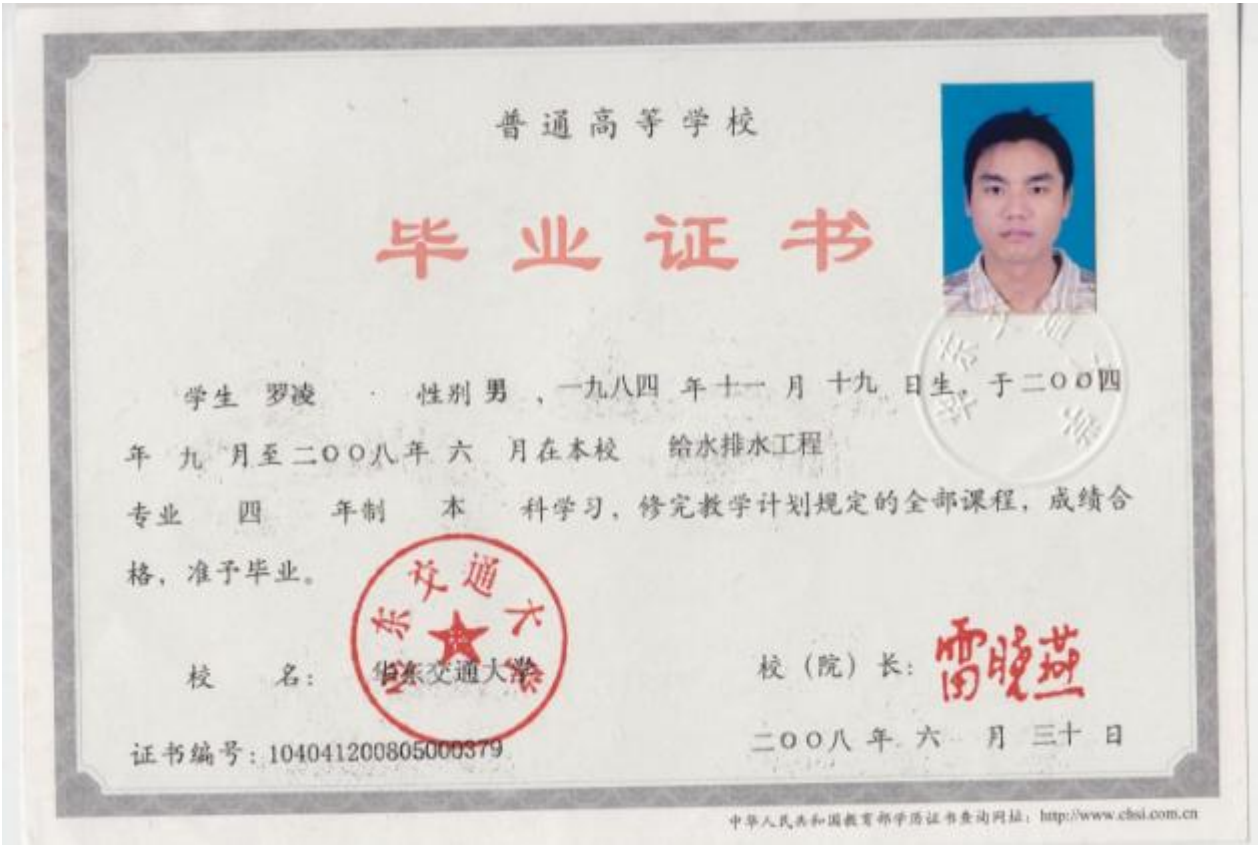 普通高等学校
毕业证书
学生 罗凌 性别 男 、一九八四 年 十一 月 十九 日生，于二〇〇四
年 九 月至二〇〇八年 六 月在本校 给水排水工程
专业 四 年制 本 科学习，修完教学计划规定的全部课程，成绩合
格，准予毕业。
华东交通大学
校 名： 华东交通大学
校（院）长：雷晓燕
证书编号：104041200805000379
二〇〇八 年 六 月 三十 日
中华人民共和国教育部学历证书查询网址：http://www.chsi.com.cn
华东交通大学